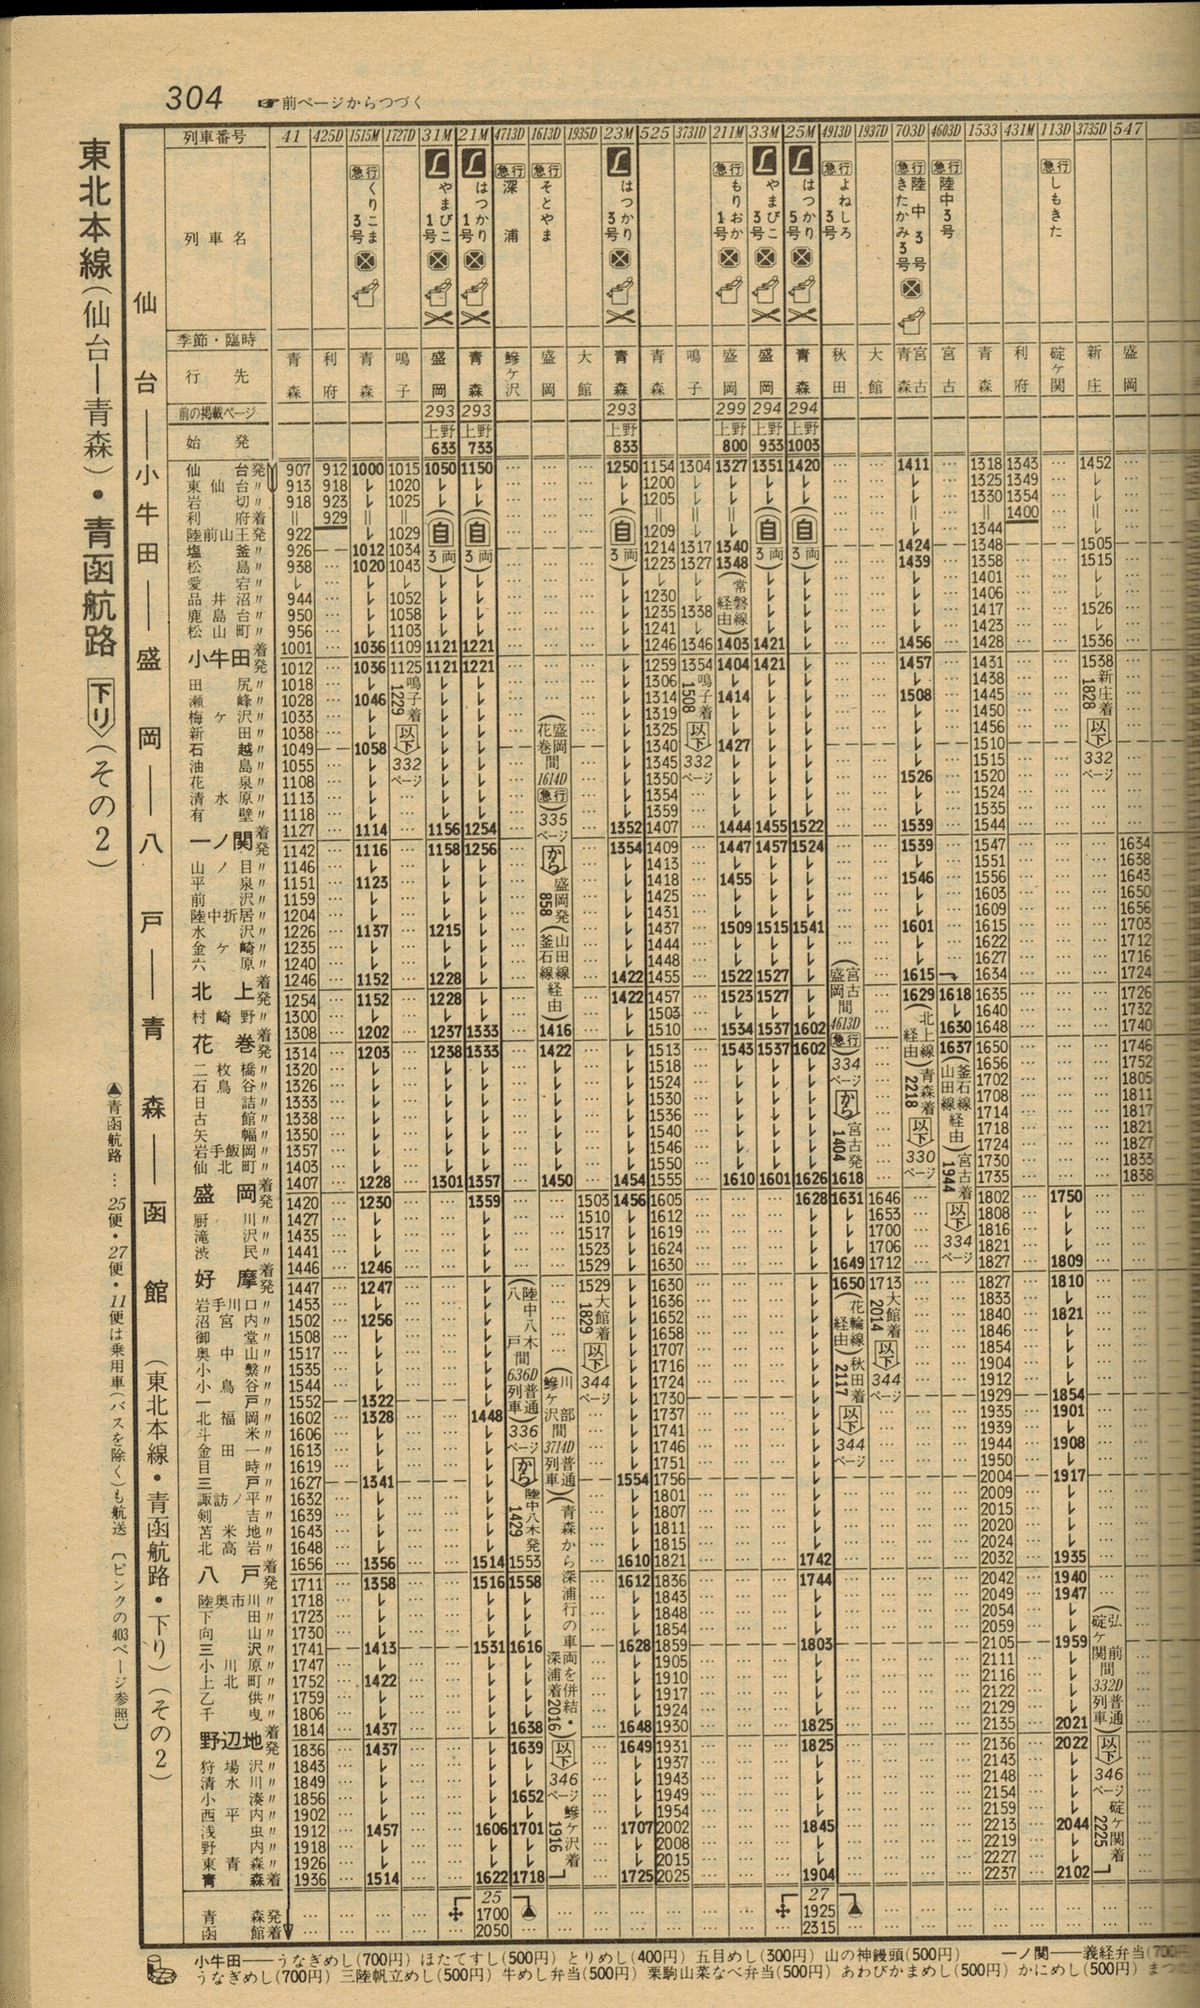 304 ☞前ページからつづく
東北本線(仙台―青森)・青函航路 下り (その2)
▲青函航路…25便・27便・11便は乗用車(バスを除く)も航送〔ピンクの403ページ参照〕
仙台――小牛田――盛岡――八戸――青森―函館(東北本線・青函航路・下り)(その2)
列車番号 41 425D 1515M 1727D 31M 21M 4713D 1613D 1935D 23M 525 3731D 211M 33M 25M 4913D 1937D 703D 4603D 1533 431M 113D 3735D 547
列車名
急行 くりこま3号
やまびこ1号
はつかり1号
急行 深浦
急行 そとやま
はつかり3号
急行 もりおか1号
やまびこ3号
はつかり5号
急行 よねしろ3号
急行 陸中3号 きたかみ3号
急行 陸中3号
急行 しもきた
季節・臨時
行先 青森 利府 青森 鳴子 盛岡 青森 鰺ケ沢 盛岡 大館 青森 青森 鳴子 盛岡 盛岡 青森 秋田 大館 青森 宮古 宮古 青森 利府 碇ケ関 新庄 盛岡
前の掲載ページ 293 293 293 299 294 294
始発 上野633 上野733 上野833 上野800 上野933 上野1003
仙台発 907 912 1000 1015 1050 1150 1250 1154 1304 1327 1351 1420 1411 1318 1343 1452
東仙台〃 913 918 1020 1200 1325 1349
岩切〃 918 923 1025 1205 1330 1354
利府着 929 1400
陸前山王発 922 1029 1209 1344
塩釜〃 926 1012 1034 1214 1317 1340 1424 1348 1505
松島〃 938 1020 1043 1223 1327 1348 1439 1358 1515
愛宕〃 1401
品井沼〃 944 1052 1230 1406
鹿島台〃 950 1058 1235 1338 1417 1526
松山町〃 956 1103 1241 1423
小牛田着 1001 1036 1109 1121 1221 1246 1346 1403 1421 1456 1428 1536
発 1012 1036 1125 1121 1221 1259 1354 1404 1421 1457 1431 1538
田尻〃 1018 1306 1438
瀬峰〃 1028 1046 1314 1414 1508 1445
梅ケ沢〃 1033 1319 1450
新田〃 1038 1325 1456
石越〃 1049 1058 1340 1427 1510
油島〃 1055 1345 1515
花泉〃 1108 1350 1526 1520
清水原〃 1113 1354 1524
有壁〃 1118 1359 1535
一ノ関着 1127 1114 1156 1254 1352 1407 1444 1455 1522 1539 1544
発 1142 1116 1158 1256 1354 1409 1447 1457 1524 1539 1547 1634
山ノ目〃 1146 1413 1551 1638
平泉〃 1151 1123 1418 1455 1546 1556 1643
前沢〃 1159 1425 1603 1650
陸中折居〃 1204 1431 1609 1656
水沢〃 1226 1137 1215 1437 1509 1515 1541 1601 1615 1703
金ケ崎〃 1235 1444 1622 1712
六原〃 1240 1448 1627 1716
北上着 1246 1152 1228 1422 1455 1522 1527 1615 1634 1724
発 1254 1152 1228 1422 1457 1523 1527 1629 1618 1635 1726
村崎野〃 1300 1503 1640 1732
花巻着 1308 1202 1237 1333 1416 1510 1534 1537 1602 1630 1648 1740
発 1314 1203 1238 1333 1422 1513 1543 1537 1602 1637 1650 1746
二枚橋〃 1320 1518 1656 1752
石鳥谷〃 1326 1524 1702 1805
日詰〃 1333 1530 1708 1811
古館〃 1338 1536 1714 1817
矢幅〃 1350 1540 1718 1821
岩手飯岡〃 1357 1546 1724 1827
仙北町〃 1403 1550 1730 1833
盛岡着 1407 1228 1301 1357 1450 1454 1555 1610 1601 1626 1618 1735 1838
発 1420 1230 1359 1503 1456 1605 1628 1631 1646 1802 1750
厨川〃 1427 1510 1612 1653 1808
滝沢〃 1435 1517 1619 1700 1816
渋民〃 1441 1523 1624 1706 1821
好摩着 1446 1246 1529 1630 1649 1712 1827 1809
発 1447 1247 1529 1630 1650 1713 1827 1810
岩手川口〃 1453 1636 1833
沼宮内〃 1502 1256 1652 1840 1821
御堂〃 1508 1658 1846
奥中山〃 1517 1707 1854
小繋〃 1535 1716 1904
小鳥谷〃 1544 1724 1912
一戸〃 1552 1322 1730 1929 1854
北福岡〃 1602 1328 1448 1737 1935 1901
斗米〃 1606 1741 1939
金田一〃 1613 1746 1944 1908
目時〃 1619 1751 1950
三戸〃 1627 1341 1554 1756 2004 1917
諏訪ノ平〃 1632 1801 2009
剣吉〃 1639 1807 2015
苫米地〃 1643 1811 2020
北高岩〃 1648 1815 2024
八戸着 1656 1356 1514 1553 1610 1821 1742 2032 1935
発 1711 1358 1516 1558 1612 1836 1744 2042 1940
陸奥市川〃 1718 1843 2049 1947
下田〃 1723 1848 2054
向山〃 1730 1854 2059
三沢〃 1741 1413 1531 1616 1628 1859 1803 2105 1959
小川原〃 1747 1905 2111
上北町〃 1752 1422 1910 2116
乙供〃 1759 1917 2122
千曳〃 1806 1924 2129
野辺地着 1814 1437 1638 1648 1930 1825 2135 2021
発 1836 1437 1639 1649 1931 1825 2136 2022
狩場沢〃 1843 1937 2143
清水川〃 1849 1943 2148
小湊〃 1856 1652 1949 2154
西平内〃 1902 1954 2159
浅虫〃 1912 1457 1606 1701 1707 2002 1845 2213 2044
野内〃 1918 2008 2219
東青森〃 1926 2015 2227
青森着 1936 1514 1622 1718 1725 2025 1904 2237 2102
25 27
青森発 1700 1925
函館着 2050 2315
自 3両
自 3両
自
自 3両
自
鳴子着 1229 以下 332ページ
(花巻 盛岡間 1614D 急行) 335ページ から 盛岡発 858 (山田線 釜石線 経由)
鳴子着 1508 以下 332ページ
(常磐線経由)
(宮古 盛岡間 4613D 急行) 334ページ から 宮古発 1404
(花輪線経由) 秋田着 2117 以下 344ページ
(北上線経由) 青森着 2218 以下 330ページ
(釜石線 山田線 経由) 宮古着 1944 以下 334ページ
新庄着 1828 以下 332ページ
大館着 1829 以下 344ページ
大館着 2014 以下 344ページ
(陸中八木 八戸間 636D 普通列車) 336ページ から 陸中八木発 1429
(川部 鰺ケ沢間 3714D 普通列車) (青森から深浦行の車両を併結・深浦着2016) 以下 346ページ 鰺ケ沢着 1916
(弘前 碇ケ関間 332D 普通列車) 以下 346ページ 碇ケ関着 2225
小牛田――うなぎめし(700円) ほたてすし(500円) とりめし(400円) 五目めし(300円) 山の神饅頭(500円) 一ノ関――義経弁当(700円
うなぎめし(700円) 三陸帆立めし(500円) 牛めし弁当(500円) 栗駒山菜なべ弁当(500円) あわびかまめし(500円) かにめし(500円)